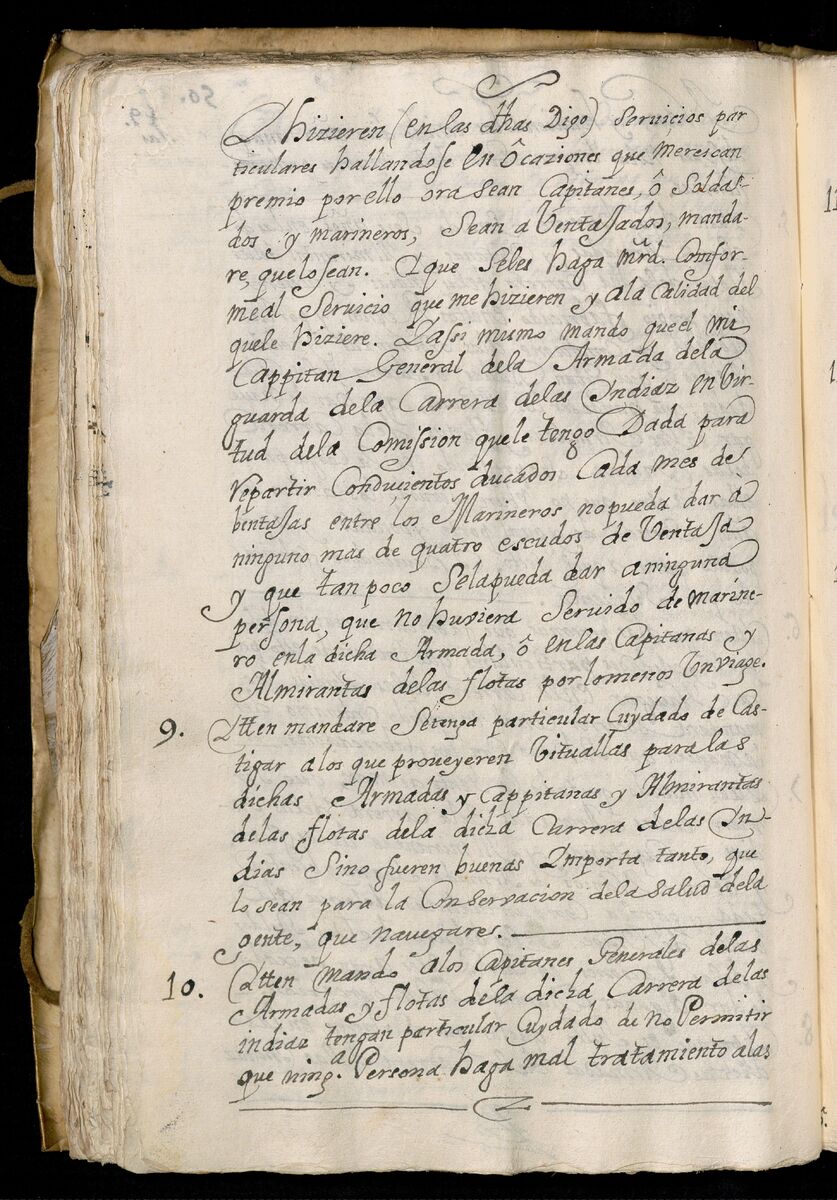 Y hizieren (en las dhas Digo) servicios par
ticulares hallandose en ôcaziones que merescan
premio por ello ora sean Capitanes, ô Solda-
dos y marineros, sean aVentajados, manda-
re, que lo sean. Y que seles haga mrd. Comfor-
me al Servicio que me hizieren y ala Calidad del
quele hiziere. Y assi mismo mando que el mi
Cappitan General dela Armada dela
guarda dela Carrera delas Yndiaz en Vir-
tud dela Comission quele tengo Dada para
repartir Conducientos ducados Cada mes de
bentajas entre los Marineros no pueda dar a
ninguno mas de quatro escudos de Ventaja
y que tan poco Selapueda dar aninguna
persona, que no huviera Servido de marine-
ro enla dicha Armada, ô en las Capitanas y
Almirantas delas flotas por lo menos Un viage.
9. Ytten mandare Setenga particular Cuydado de Cas-
tigar a los que proveyeren Vituallas para las
dichas Armadas y Cappitanas y Almirantas
delas flotas dela dicha Carrera delas Yn-
dias Sino fueren buenas Ymporta tanto, que
lo sean para la Conservacion dela Salud dela
gente, que navegares.
10. Ytten mando alos Capitanes Generales delas
Armadas y flotas dela dicha Carrera delas
indiaz tengan particular Cuydado de no Permitir
que ning.ª Persona haga mal tratamiento alas